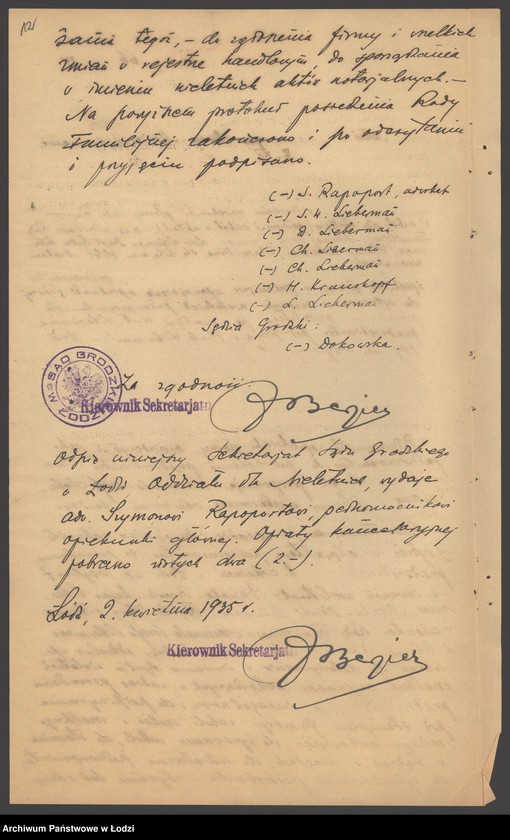 żania tegoż, – do zgłoszenia firmy i wszelkich
zmian w rejestrze handlowym, do sporządzania
w imieniu nieletnich aktów notarjalnych. –
Na powyższem protokuł posiedzenia Rady
Familijnej zakończono i po odczytaniu
i przyjęciu podpisano.
(–) S. Rapoport, adwokat
(–) S. H. Lieberman
(–) D. Lieberman
(–) Ch. Lieberman
(–) Ch. Lieberman
(–) H. Krauskopf
(–) L. Lieberman
Sędzia Grodzki:
(–) Dakowska.
SĄD GRODZKI
Za zgodność:
Kierownik Sekretarjatu
Odpis niniejszy Sekretarjat Sądu Grodzkiego
w Łodzi, Oddziału dla Nieletnich, wydaje
adw. Szymonowi Rapoportowi, pełnomocnikowi
opiekunki głównej. Opłaty kancelaryjnej
pobrano złotych dwa (2.–).
Łódź, 2. kwietnia 1935 r.
Kierownik Sekretarjatu
Archiwum Państwowe w Łodzi